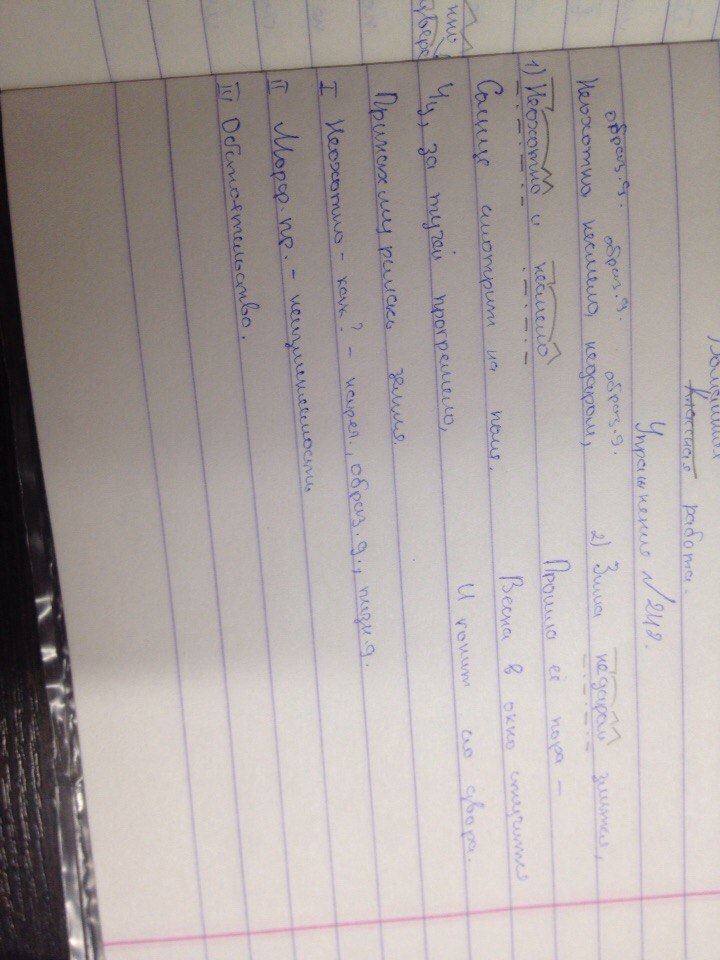 Домашняя
Классная работа.
Упражнение №242.
образ.д. образ.д. образ.д.
Неохотно, несмело, недаром,
1) Неохотно и несмело
Солнце смотрит на поля.
Чу, за тучей прогремело,
Принахмурилась земля.
2) Зима недаром злится,
Прошла её пора –
Весна в окно стучится
И гонит со двора.
I Неохотно - как? - нареч., образ.д.,
II Морф. пр. - неизменяемость
III Обстоятельство.